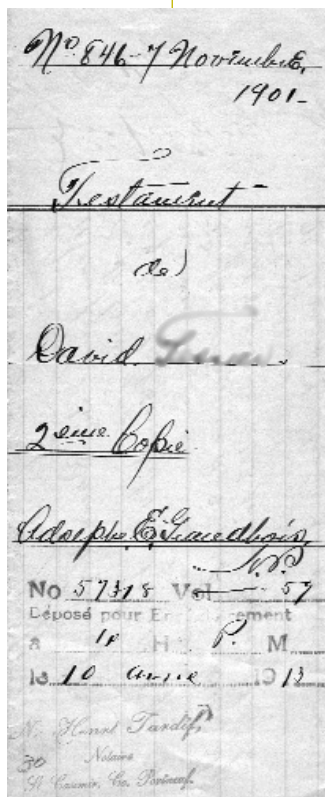 No 846 - 7 Novembre,
1901 -
Testament -
de
David
2ème Copie
Adolphe E. Grandbois,
N.P.
No 57318 Vol 57
Déposé pour Enregistrement
à H P. M
le 10 1913
N. Henri Tardif,
Notaire
30
St Casimir, Co. Portneuf.